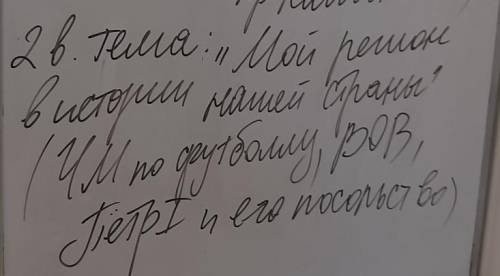 2 в. тема: „Мой регион
в истории нашей страны"
(ЧМ по футболлу, ВОВ,
Пётр I и его посольство)